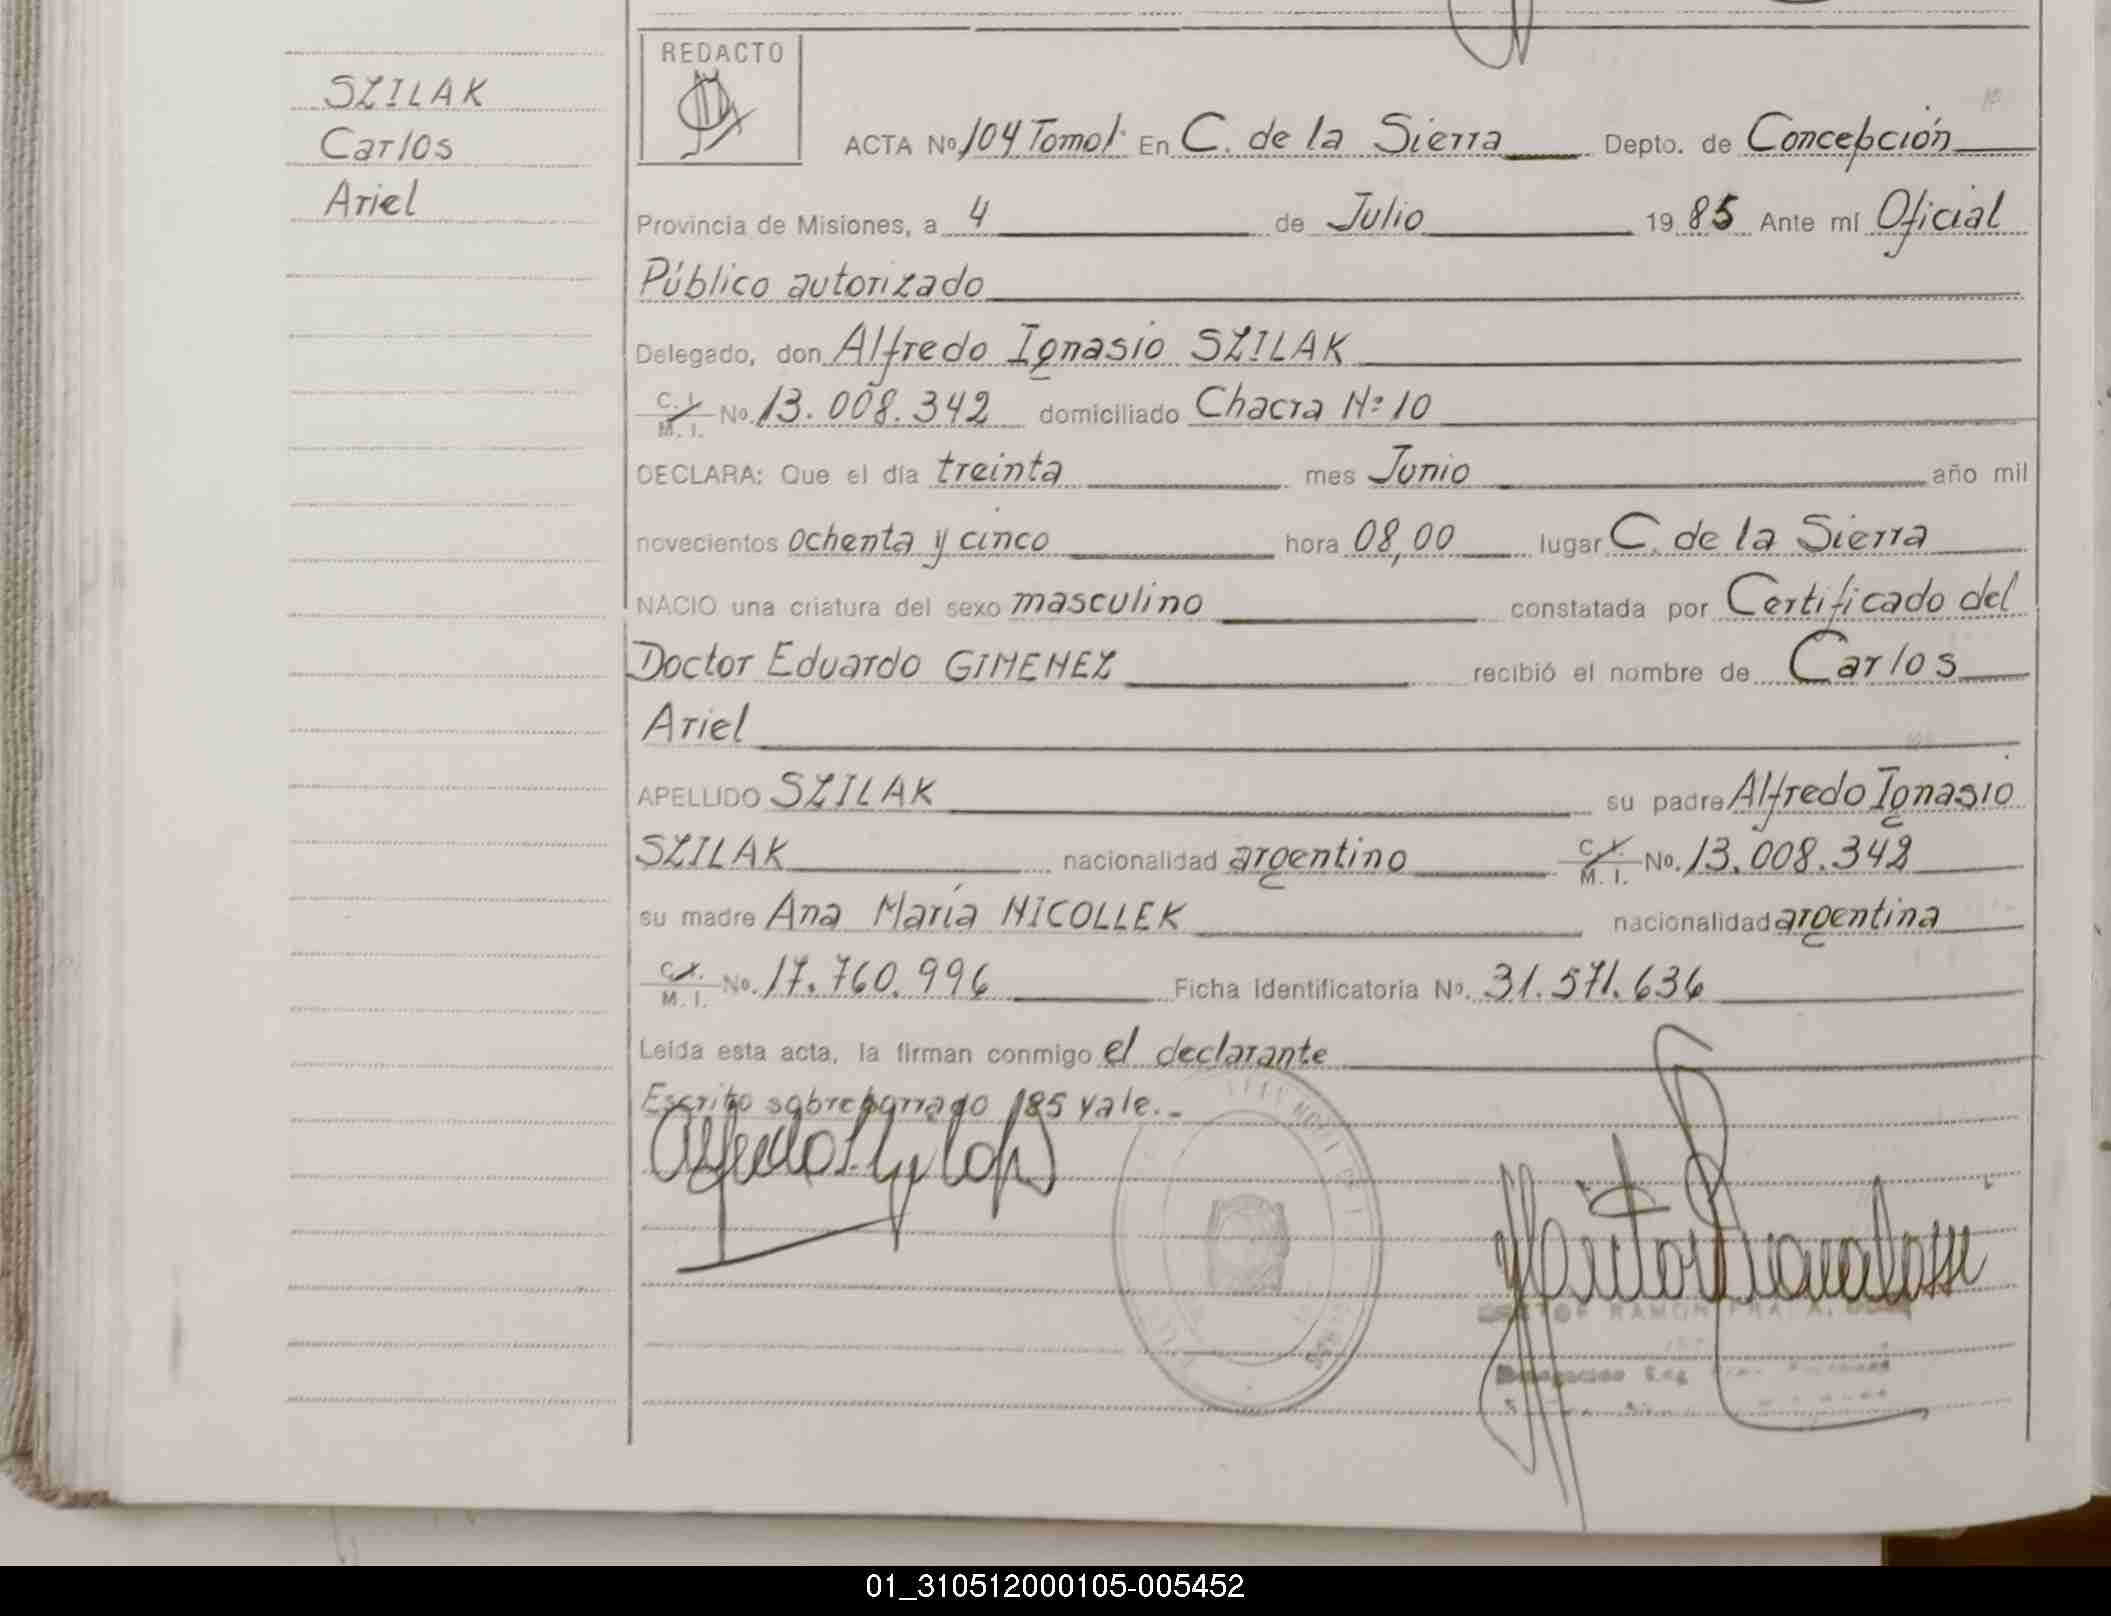 REDACTO
SZILAK
Carlos
Ariel
ACTA No 104 Tomo I En C. de la Sierra Depto. de Concepción
Provincia de Misiones, a 4 de Julio 19 85 Ante mí Oficial
Público autorizado
Delegado, don Alfredo Ignasio SZILAK
C. I. M. I. No. 13.008.342 domiciliado Chacra Nº 10
DECLARA: Que el día treinta mes Junio año mil
novecientos ochenta y cinco hora 08,00 lugar C. de la Sierra
NACIO una criatura del sexo masculino constatada por Certificado del
Doctor Eduardo GIMENEZ recibió el nombre de Carlos
Ariel
APELLIDO SZILAK su padre Alfredo Ignasio
SZILAK nacionalidad argentino C. I. M. I. No. 13.008.342
su madre Ana María NICOLLEK nacionalidad argentina
C. I. M. I. No. 17.760.996 Ficha Identificatoria No. 31.571.636
Leída esta acta, la firman conmigo el declarante
Escrito sobreborrado 85 vale.-
01_310512000105-005452